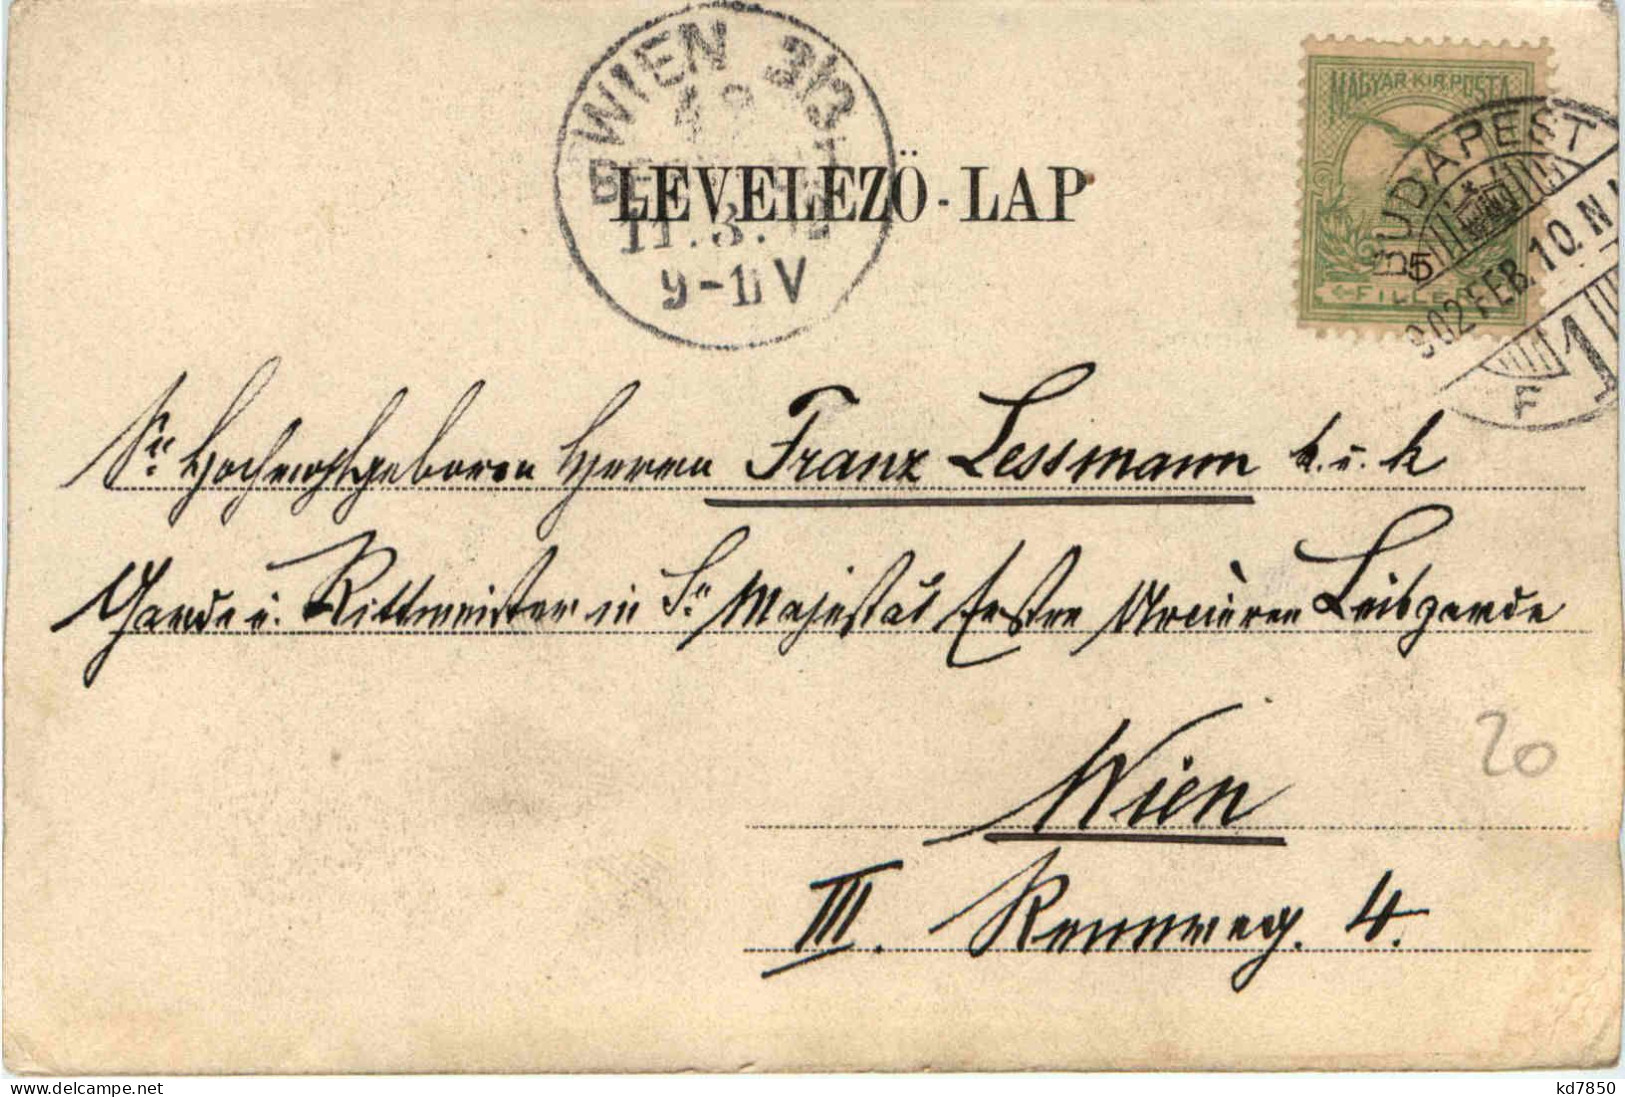 WIEN 3/3
11.3.
9-11 V
LEVELEZÖ-LAP
MAGYAR·KIR·POSTA
5
FILLÉR
BUDAPEST
902 FEB. 10. N
F 1
Sr Hochwohlgeboren Herrn Franz Lessmann k. u. k
Garde u. Rittmeister in Sr Majestät Ersten Arcièren Leibgarde
Wien
III. Rennweg. 4.
20
kd7850